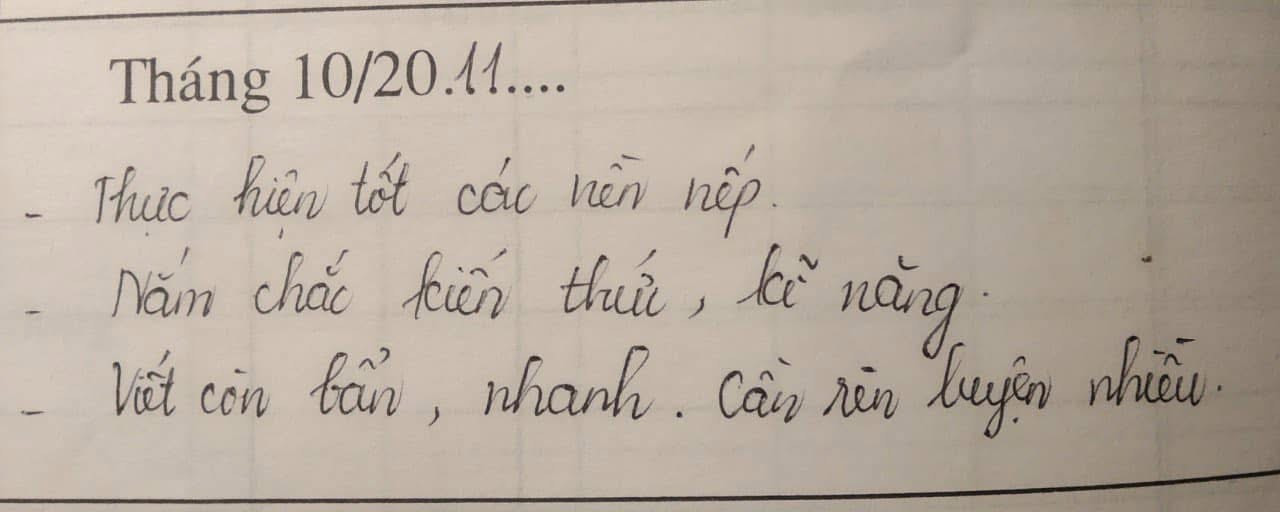 Tháng 10/20.11....
- Thực hiện tốt các nền nếp.
- Nắm chắc kiến thức, kĩ năng.
- Viết còn bẩn, nhanh. Cần rèn luyện nhiều.